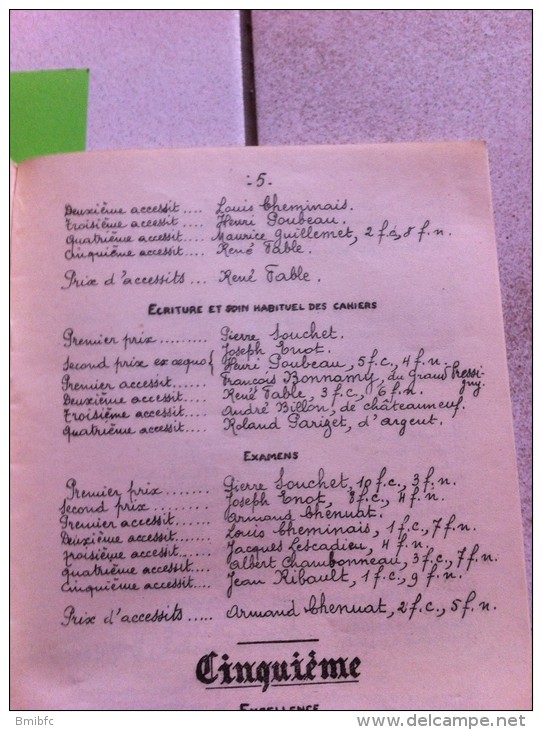 :5.
Deuxième accessit.... Louis Cheminais.
Troisième accessit.... Henri Poubeau.
Quatrième accessit... Maurice Guillemet, 2 f.c., 8 f.n.
Cinquième accessit... René Fable.
Prix d'accessits... René Fable.
ECRITURE ET SOIN HABITUEL DES CAHIERS
Premier prix........... Pierre Souchet.
Second prix ex œquo { Joseph Enot.
Henri Poubeau, 5 f.c., 4 f.n.
Premier accessit...... François Bonnamy, du Grand Pressigny.
Deuxième accessit.... René Fable, 3 f.c., 6 f.n.
Troisième accessit.... André Billon, de Châteauneuf.
Quatrième accessit... Roland Pariget, d'Argent.
EXAMENS
Premier prix........ Pierre Souchet, 10 f.c., 3 f.n.
Second prix......... Joseph Enot, 8 f.c., 4 f.n.
Premier accessit...... Armand Chenuat.
Deuxième accessit..... Louis Cheminais, 1 f.c., 7 f.n.
Troisième accessit.... Jacques Lescadieu, 4 f.n.
Quatrième accessit.... Albert Chambonneau, 3 f.c., 7 f.n.
Cinquième accessit.... Jean Ribault, 1 f.c., 9 f.n.
Prix d'accessits..... Armand Chenuat, 2 f.c., 5 f.n.
Cinquième
EXCELLENCE
Bmibfc
http://www.delcampe.net